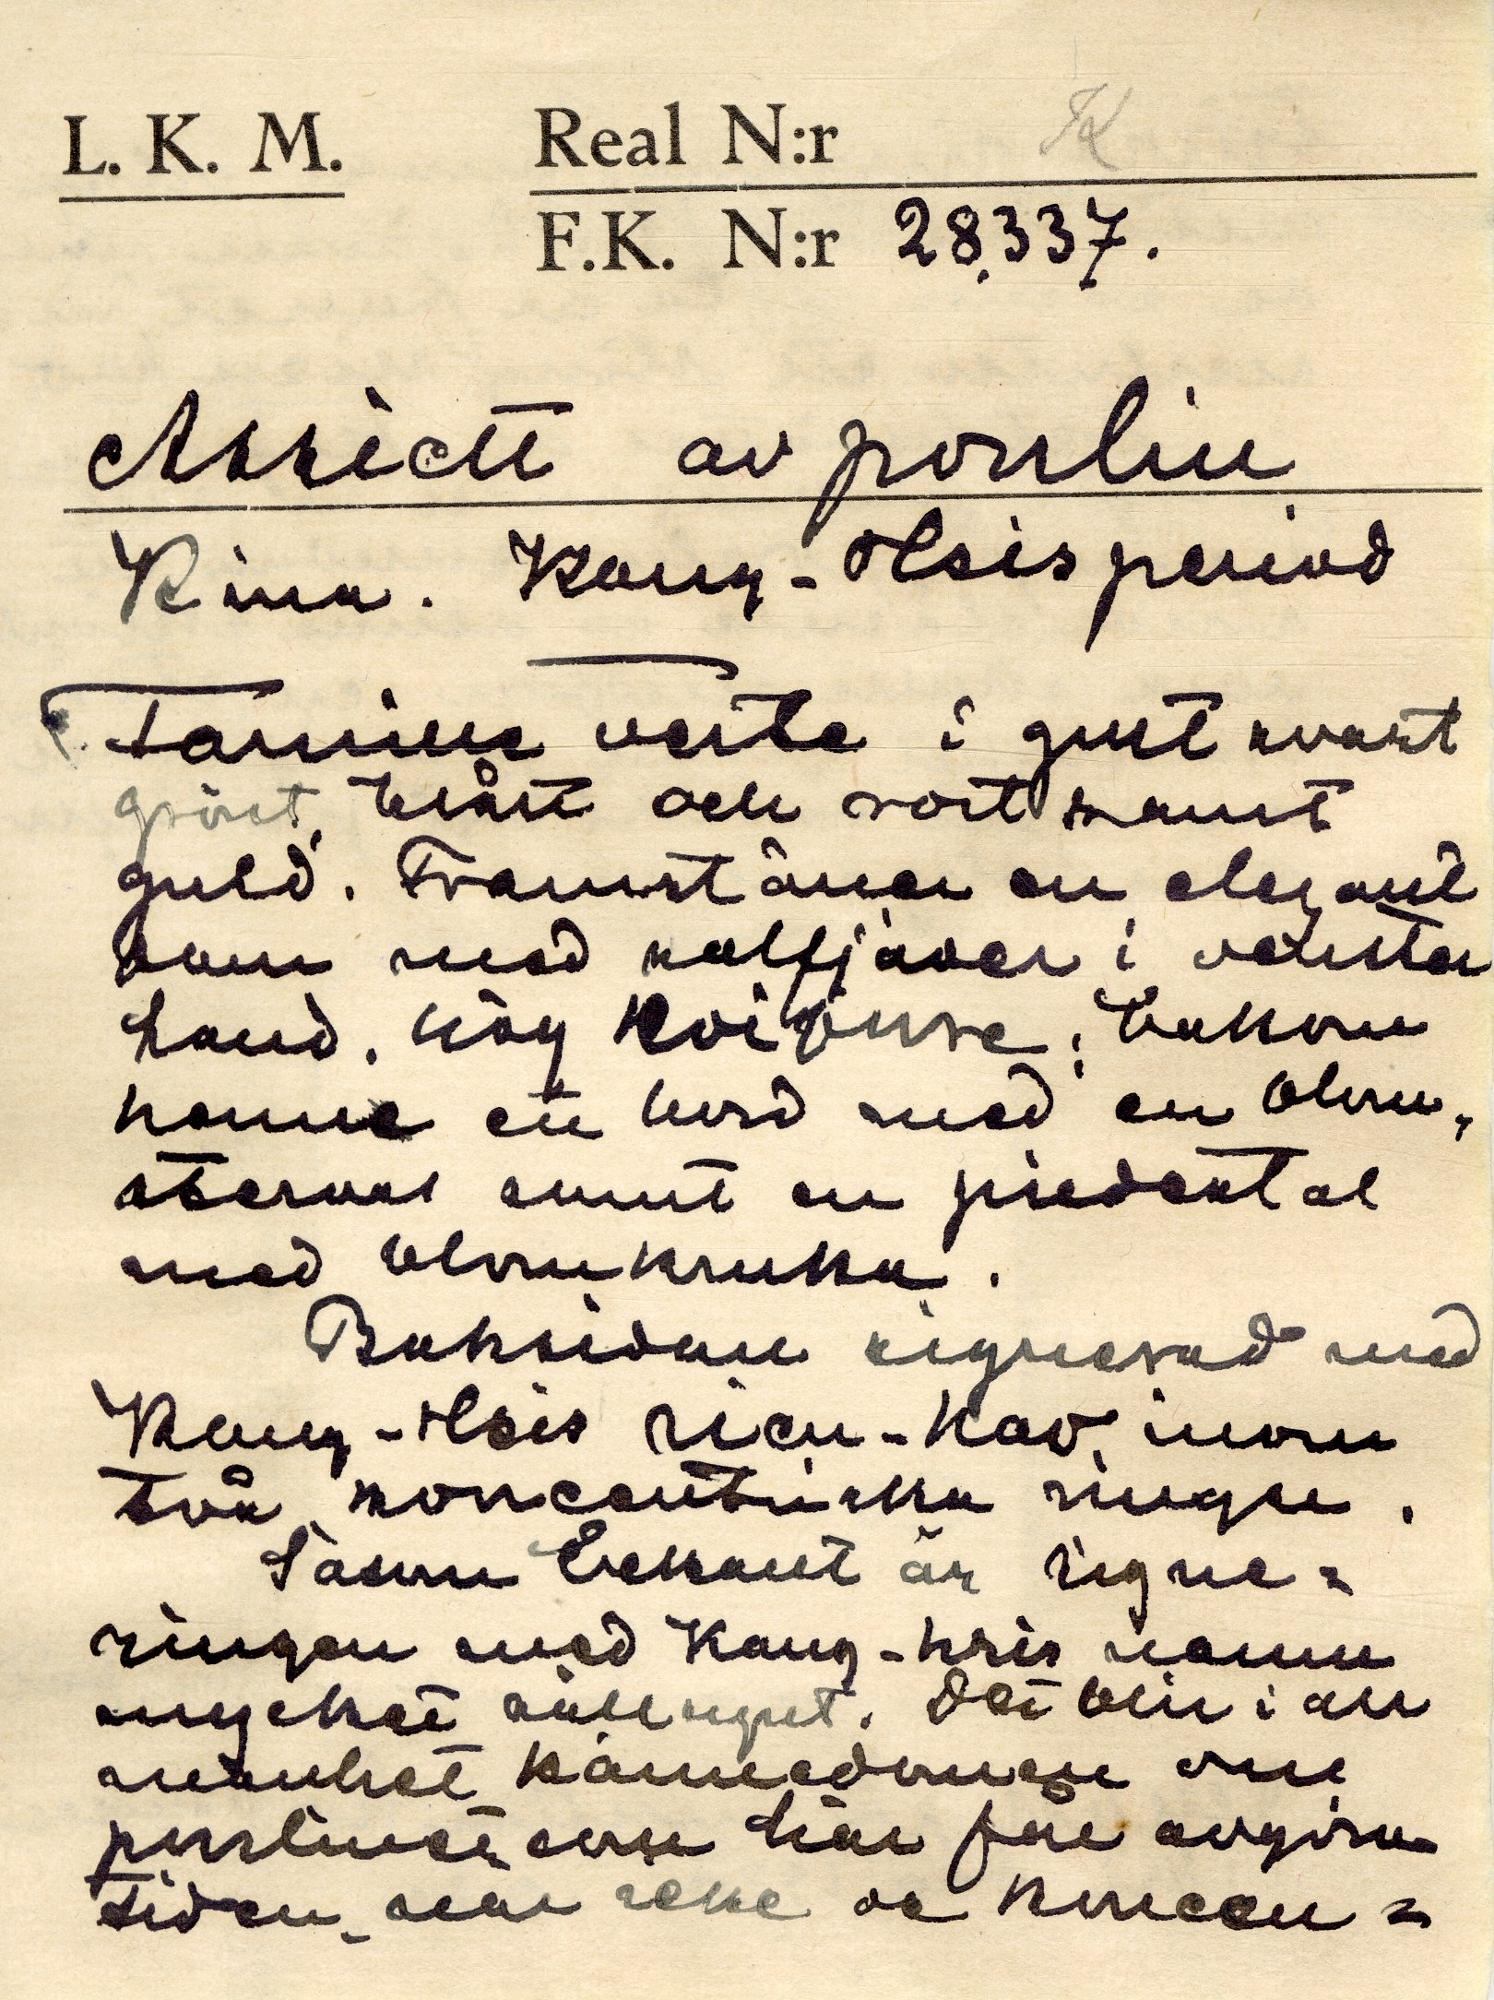 L. K. M. Real N:r K
F.K. N:r 28,337.
Assiett av porslin
Kina. Kang-Hsis period
Famille verte i gult svart
grönt, blått och rött samt
guld. Framställer en elegant
dam med solfjäder i vänster
hand, hög, bakom
henne ett bord med en blom,
samt en piedestal
med blomkruka.
Baksidan signerad med
Kang-Hsis nien-hao inom
två koncentriska ringar.
Såsom bekant är signe=
ringen med Kang-hsis namn
mycket sällsynt. Det blir i all
mänhet kännedomen om
porslinet som här får avgöra
tiden, men icke de koncen=